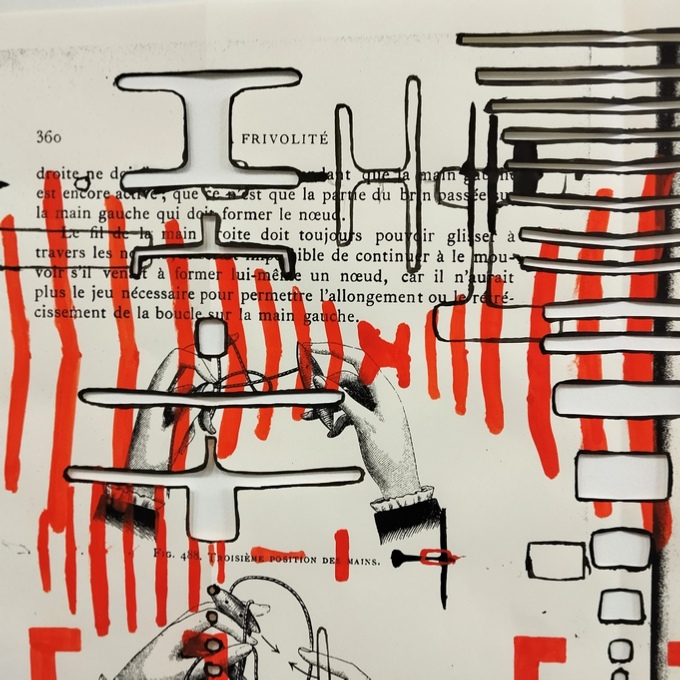 360
FRIVOLITÉ
droite ne que la main gauche
est encore active, que ce n'est que la partie du brin passée sur
la main gauche qui doit former le nœud.
Le fil de la main droite doit toujours pouvoir glisser à
travers les de continuer à le mou-
voir s'il venait à former lui-même un nœud, car il n'aurait
plus le jeu nécessaire pour permettre l'allongement ou le rétré-
cissement de la boucle sur la main gauche.
FIG. TROISIÈME POSITION DES MAINS.